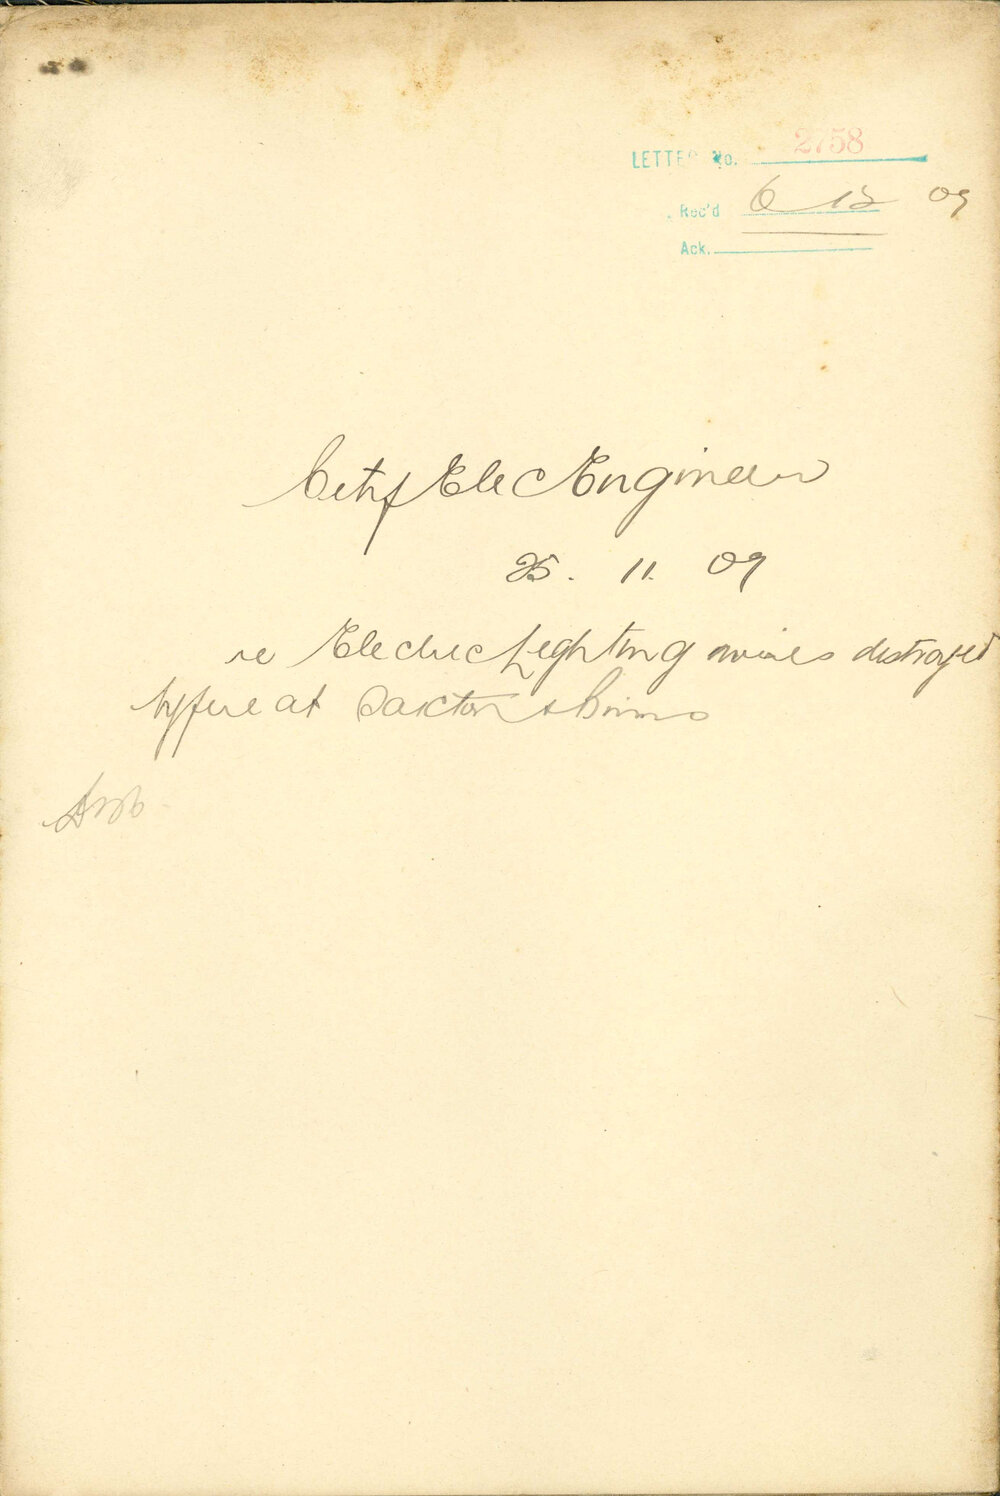 LETTER No. 2758
Rec'd 6 12 09
Ack.
City Elec Engineer
25. 11. 09
re Electric Lighting wires destroyed
by fire at Saxton & Binns